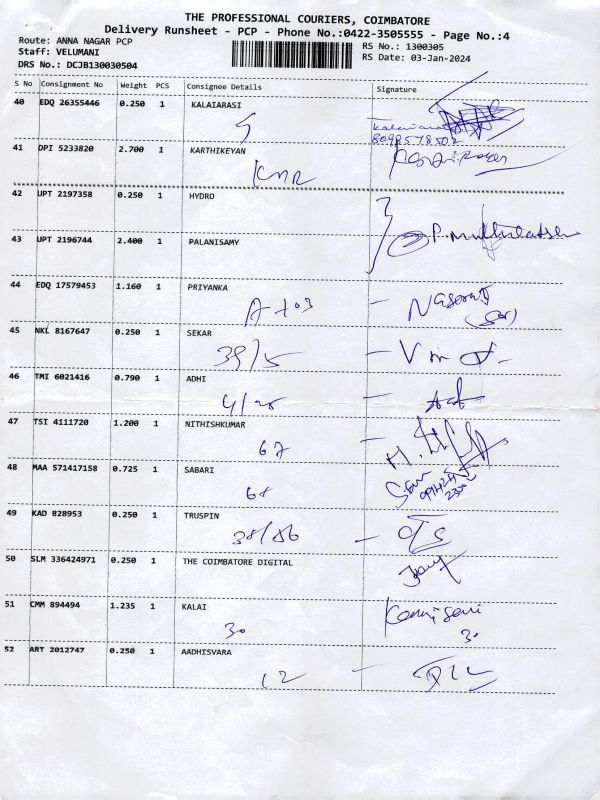 THE PROFESSIONAL COURIERS, COIMBATORE
Delivery Runsheet - PCP - Phone No.:0422-3505555 - Page No.:4
Route: ANNA NAGAR PCP
RS No.: 1300305
Staff: VELUMANI
RS Date: 03-Jan-2024
DRS No.: DCJB130030504
S No Consignment No Weight PCS Consignee Details Signature
40 EDQ 26355446 0.250 1 KALAIARASI
41 DPI 5233820 2.700 1 KARTHIKEYAN
KMR
42 UPT 2197358 0.250 1 HYDRO
43 UPT 2196744 2.400 1 PALANISAMY
44 EDQ 17579453 1.160 1 PRIYANKA
45 NKL 8167647 0.250 1 SEKAR
39/5
46 TMI 6021416 0.790 1 ADHI
47 TSI 4111720 1.200 1 NITHISHKUMAR
67
48 MAA 571417158 0.725 1 SABARI
68
49 KAD 828953 0.250 1 TRUSPIN
50 SLM 336424971 0.250 1 THE COIMBATORE DIGITAL
51 CMM 894494 1.235 1 KALAI
30 30
52 ART 2012747 0.250 1 AADHISVARA
12